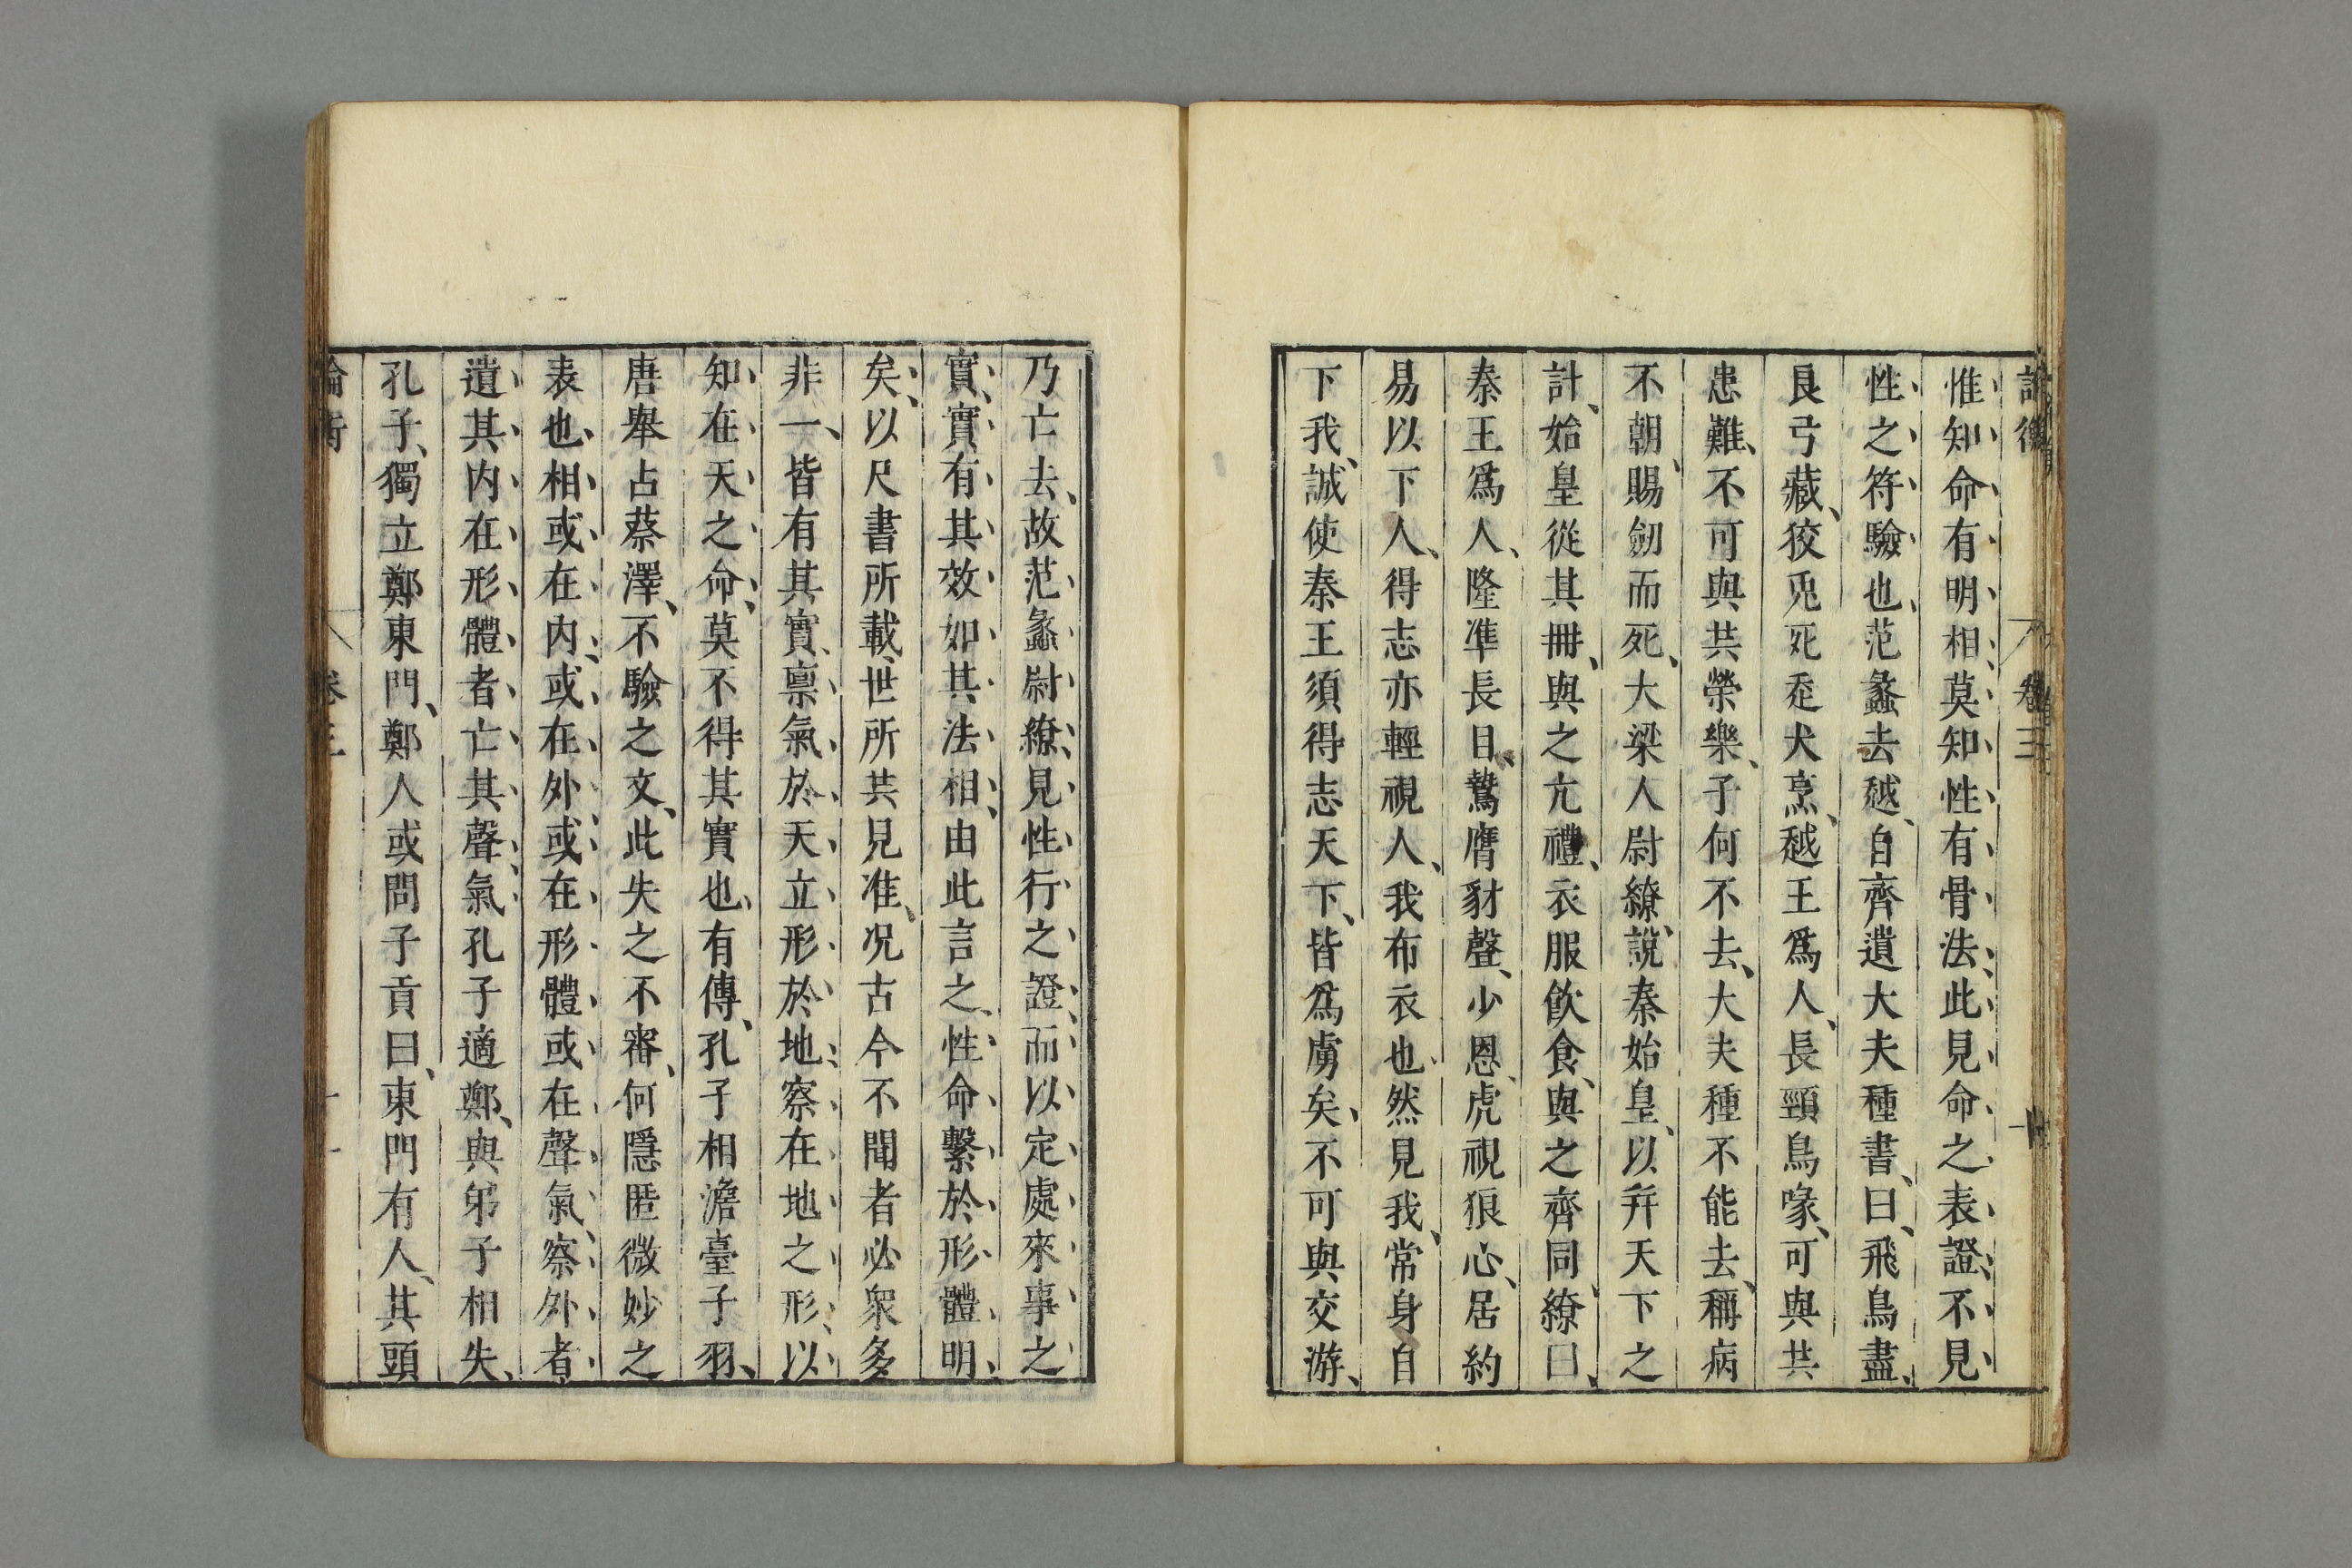 論衡 卷三 十
惟知命有明相莫知性有骨法此見命之表證不見
性之符驗也范蠡去越自齊遺大夫種書曰飛鳥盡
良弓藏狡兎死走犬烹越王爲人長頸鳥喙可與共
患難不可與共榮樂子何不去大夫種不能去稱病
不朝賜劒而死大梁人尉繚說秦始皇以幷天下之
計始皇從其冊與之亢禮衣服飲食與之齊同繚曰
秦王爲人隆凖長目鷙膺豺聲少恩虎視狼心居約
易以下人得志亦輕視人我布衣也然見我常身自
下我誠使秦王須得志天下皆爲虜矣不可與交游
乃亡去故范蠡尉繚見性行之證而以定處來事之
實實有其效如其法相由此言之性命繫於形體明
矣以尺書所載世所共見准况古今不聞者必衆多
非一皆有其實禀氣於天立形於地察在地之形以
知在天之命莫不得其實也有傳孔子相澹臺子羽
唐舉占蔡澤不驗之文此失之不審何隱匿微妙之
表也相或在内或在外或在形體或在聲氣察外者
遺其内在形體者亡其聲氣孔子適鄭與弟子相失
孔子獨立鄭東門鄭人或問子貢曰東門有人其頭
論衡 卷三 十一